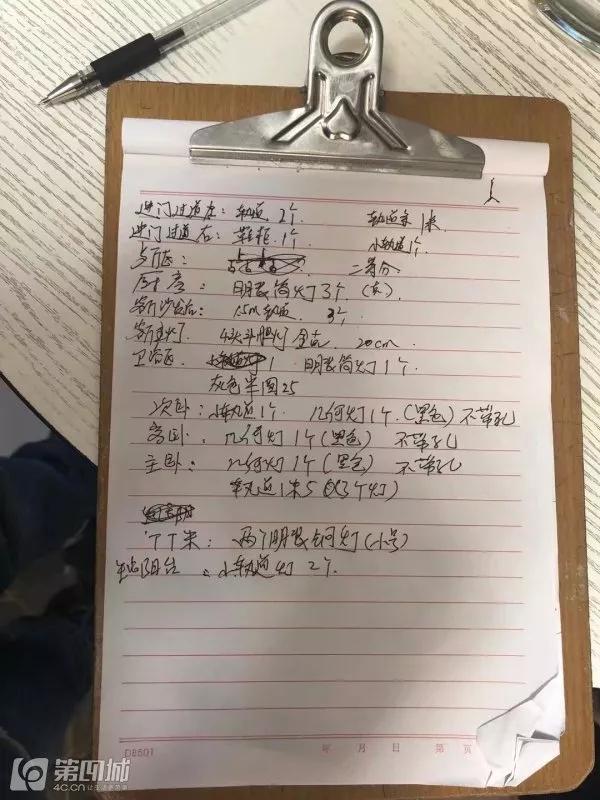 进门过道左：轨道 2个. 轨道条 1米
进门过道右：鞋柜 1个 小轨道1个
二等分
厨房： 明装筒灯3个.
客厅沙发后： 1.5m轨道 3个
客厅主灯 斗胆灯 20cm
卫浴区 1 明装筒灯1个.
灰色半圆25
次卧：小轨道1个. 几何灯1个.(黑色) 不带孔
客卧. 几何灯1个(黑色) 不带孔
主卧： 几何灯1个(黑色) 不带孔
轨道1米5
两个明装筒灯(小号)
阳台. 小轨道灯 2个.
D8501 年 月 日 第 页
第四城
4C.cn